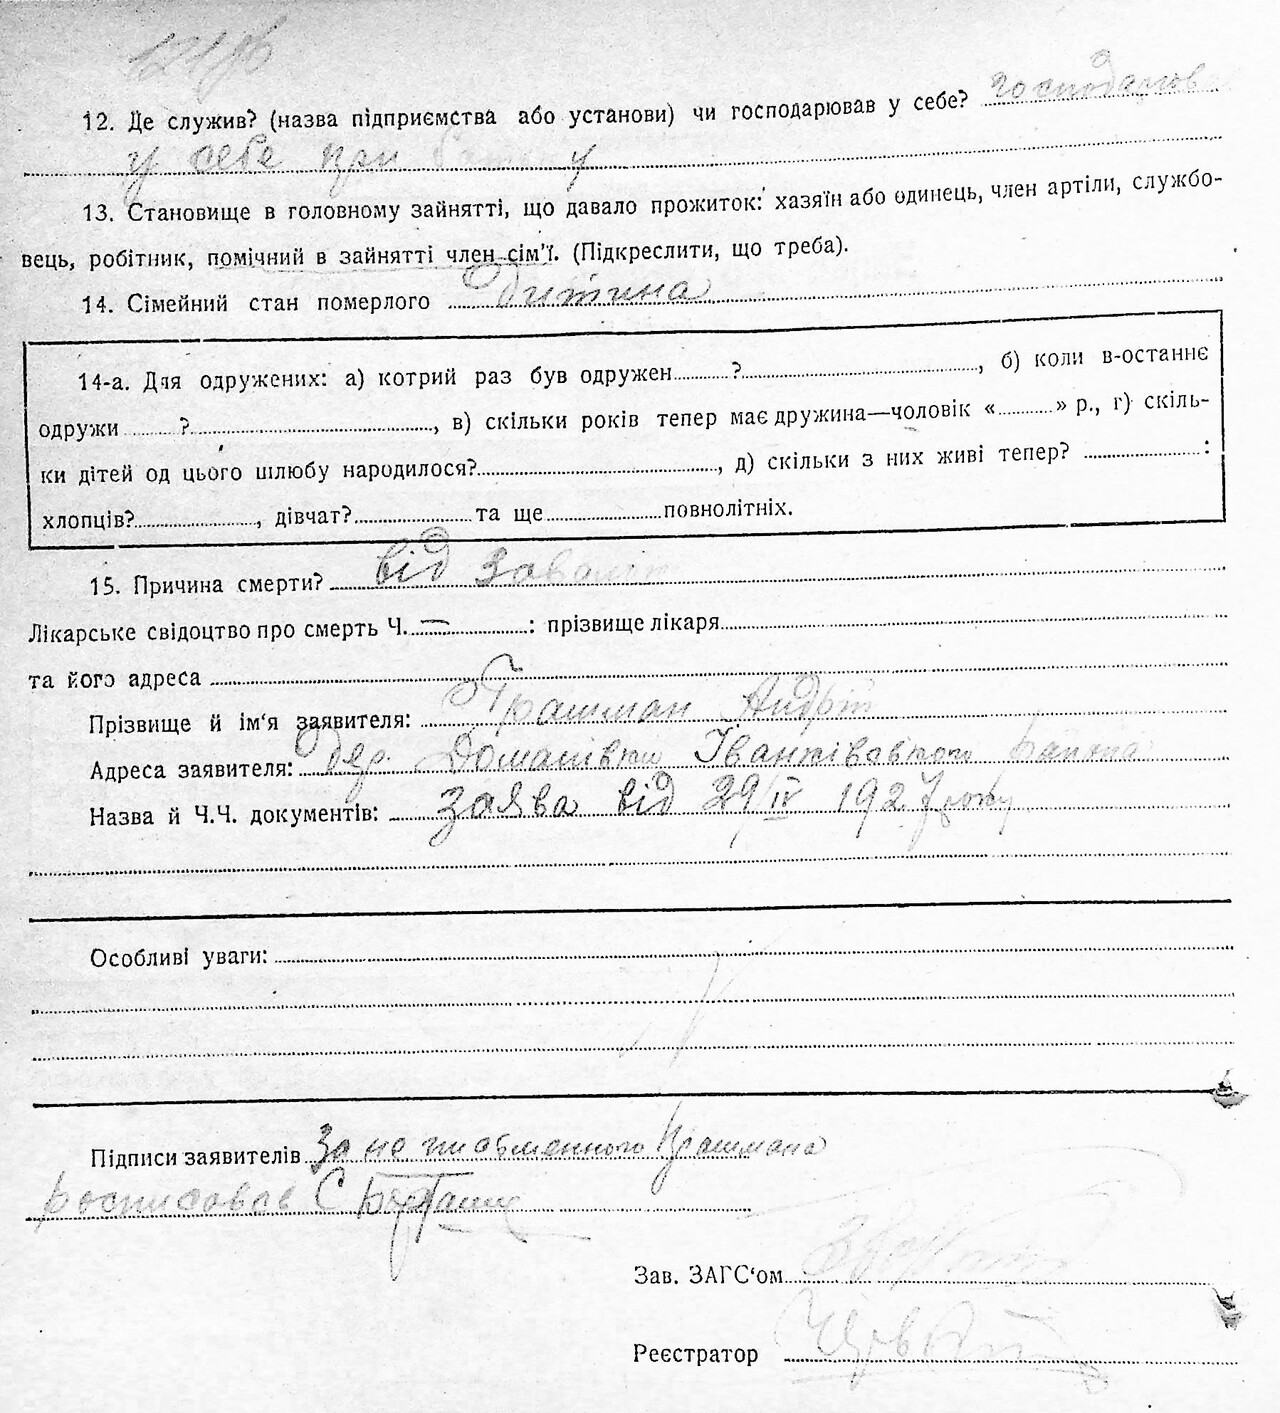 12. Де служив? (назва підприємства або установи) чи господарював у себе? господарював
у себе при батьку
13. Становище в головному зайнятті, що давало прожиток: хазяїн або одинець, член артіли, службо-
вець, робітник, помічний в зайнятті член сім'ї. (Підкреслити, що треба).
14. Сімейний стан померлого Дитина
14-а. Для одружених: а) котрий раз був одружен ? , б) коли в-останнє
одружи ? , в) скільки років тепер має дружина—чоловік « » р., г) скіль-
ки дітей од цього шлюбу народилося? , д) скільки з них живі тепер? :
хлопців? , дівчат? та ще повнолітніх.
15. Причина смерти? від
Лікарське свідоцтво про смерть Ч. — : прізвище лікаря
та його адреса
Прізвище й ім'я заявителя: Трашман Андрій
Адреса заявителя: дер. Домашівки Іванківського району
Назва й Ч.Ч. документів: заява від 29/IV 1927 року
Особливі уваги:
Підписи заявителів За не письменного Трашмана
росписовав С
Зав. ЗАГС'ом
Реєстратор